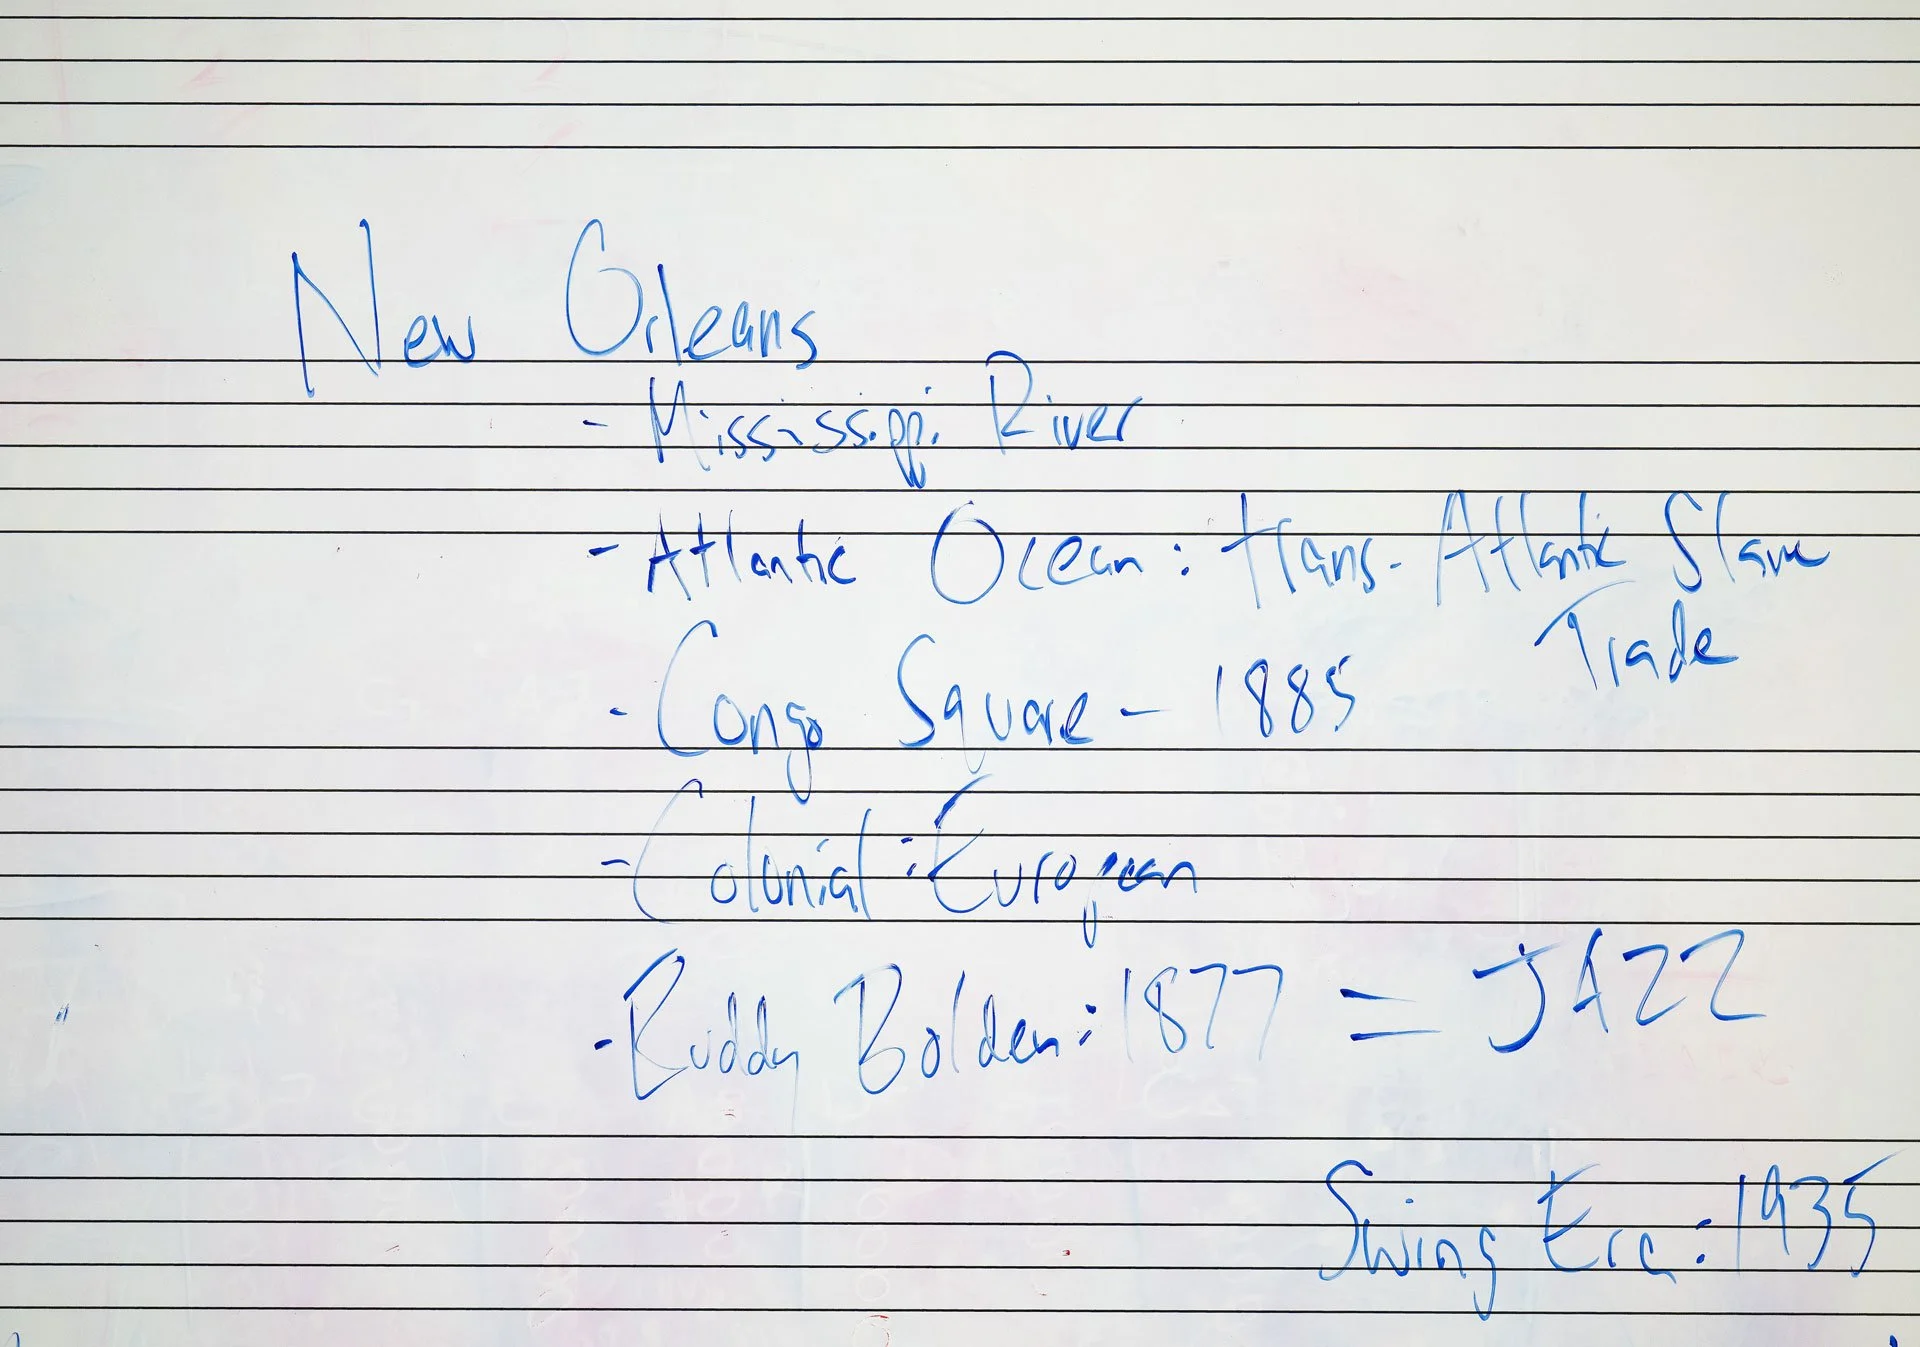 New Orleans
- Mississippi River
- Atlantic Ocean: trans-Atlantic Slave
Trade
- Congo Square - 1885
- Colonial: European
- Buddy Bolden: 1877 = JAZZ
Swing Era: 1935